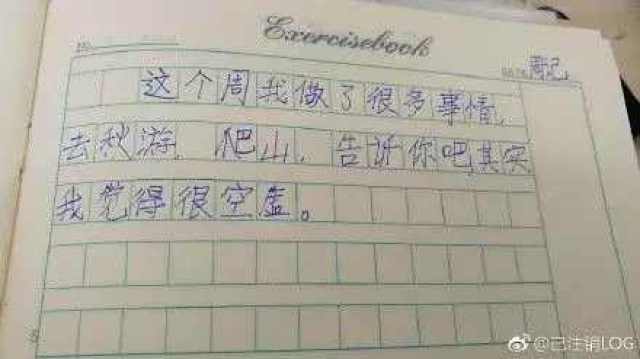 Exercisebook
周记
这个周我做了很多事情,
去秋游,爬山,告诉你吧,其实
我觉得很空虚。
@已注销LOG